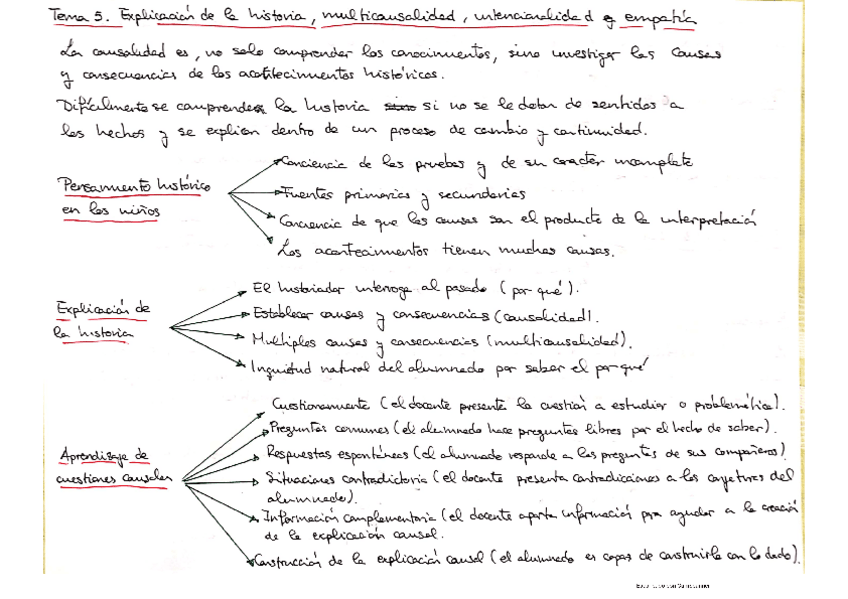 Tema 5. Explicación de la historia, multicausalidad, intencionalidad y empatía
La causalidad es, no solo comprender los conocimientos, sino investigar las causas
y consecuencias de los acontecimientos históricos.
Difícilmente se comprenden la historia si no se le dotan de sentidos a
los hechos y se explican dentro de un proceso de cambio y continuidad.
Conciencia de las pruebas y de su carácter incompleto
Pensamiento histórico
en los niños
Fuentes primarias y secundarias
Conciencia de que las causas son el producto de la interpretación
Los acontecimientos tienen muchas causas.
El historiador interroga al pasado (por qué).
Explicación de
la historia
Establecer causas y consecuencias (causalidad).
Multiples causas y consecuencias (multicausalidad).
Inquietud natural del alumnado por saber el por qué
Cuestionamiento (el docente presenta la cuestión a estudiar o problemática).
Preguntas comunes (el alumnado hace preguntas libres por el hecho de saber).
Aprendizaje de
cuestiones causales
Respuestas espontáneas (el alumnado responde a las preguntas de sus compañeros)
Situaciones contradictoria (el docente presenta contradicciones a las conjeturas del
alumnado).
Información complementaria (el docente aporta información para ayudar a la creación
de la explicación causal.
Construcción de la explicación causal (el alumnado es capas de construirla con lo dado).